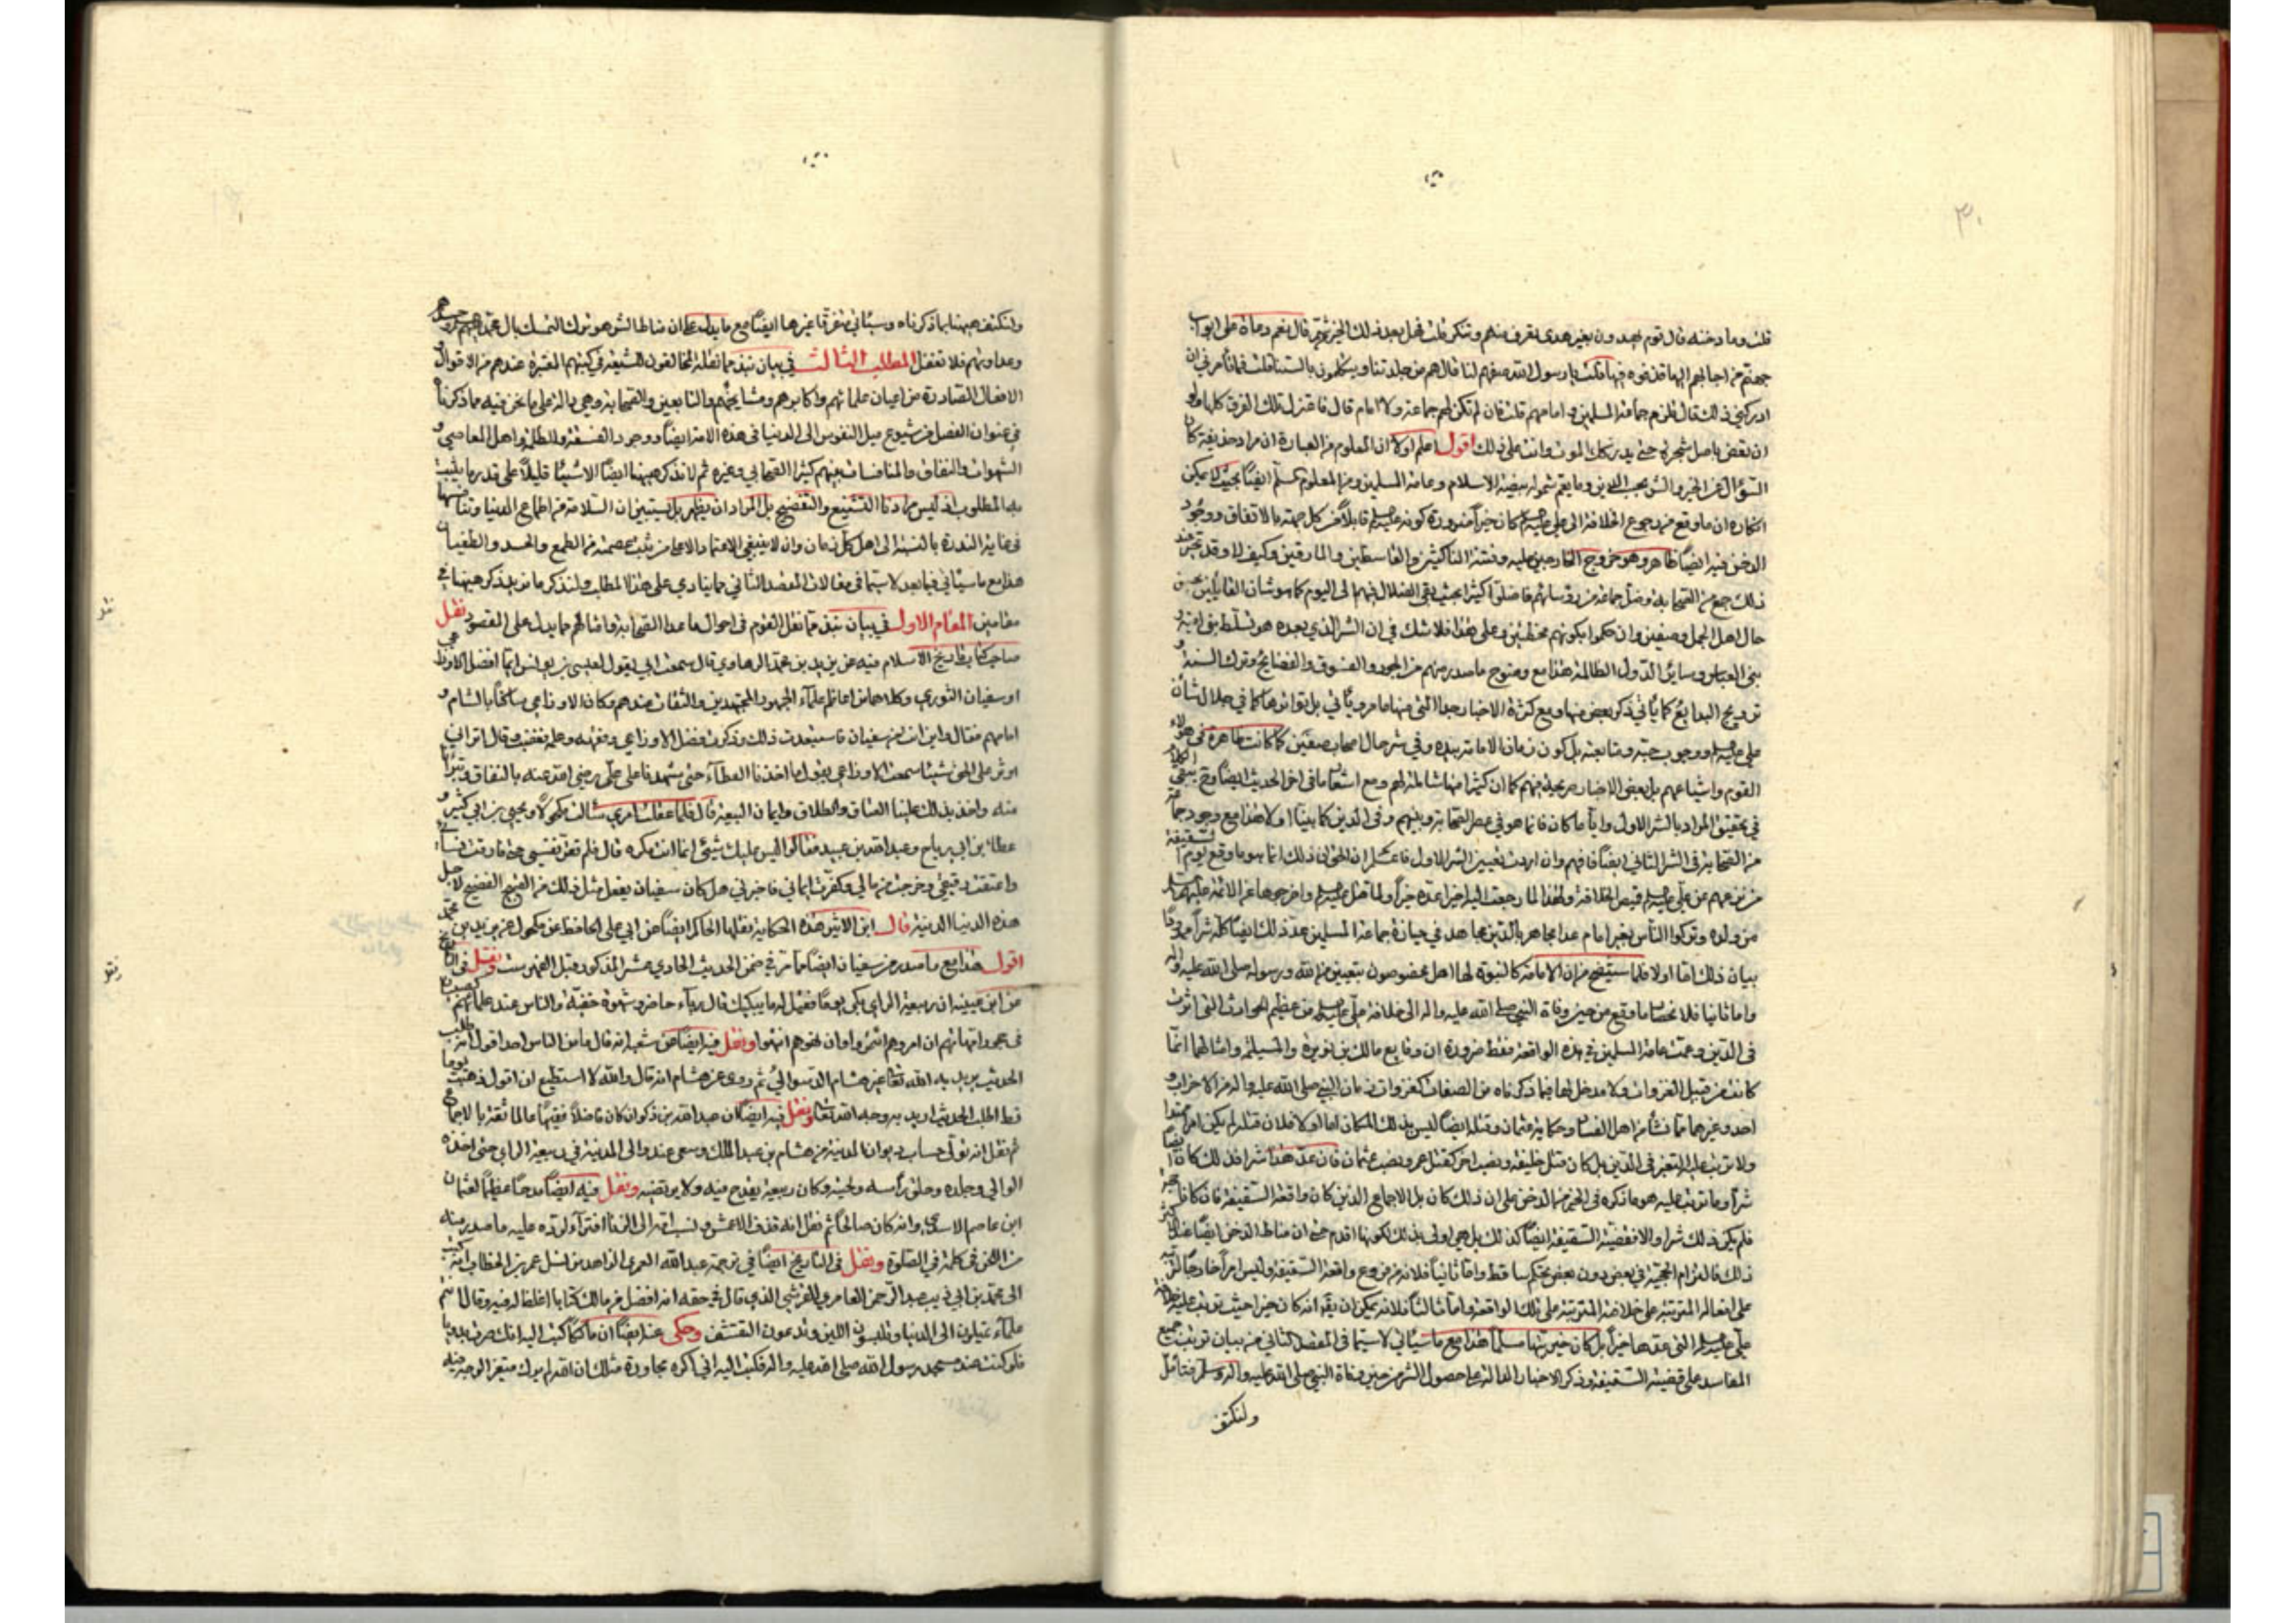 ٣٠
قلت وما دخنه قال قوم يهدون بغير هدى تعرف منهم وتنكر قلت فهل بعد ذلك الخير شر قال نعم دعاة على ابواب
جهنم من اجابهم اليها قذفوه فيها قلت يا رسول الله صفهم لنا قال هم من جلدتنا ويتكلمون بالسنتنا قلت فما تأمرني ان
ادركني ذلك قال تلزم جماعة المسلمين وامامهم قلت فان لم تكن لهم جماعة ولا امام قال فاعتزل تلك الفرق كلها ولو
ان تعض باصل شجرة حتى يدركك الموت وانت على ذلك اقول اعلم اولا ان المعلوم من العبارة ان مراد حذيفة كان
السؤال عن الخير والشر بحسب الدين وما يعم شموله بيضة الاسلام وعامة المسلمين ومن المعلوم المسلم ايضا بحيث لا يمكن
انكاره ان ما وقع من رجوع الخلافة الى علي عليه السلم كان خيرا ضرورة كونه عليه السلم قابلا من كل جهة بالاتفاق ووجود
الدخن فيه ايضا ظاهر وهو خروج الخارجين عليه وفتنة الناكثين والقاسطين والمارقين وكيف لا وقد
ذلك جمع من الصحابة وضل جماعة من رؤسائهم فاضلوا كثيرا بحيث بقي الضلال فيهم الى اليوم كما هو شان القايلين بحسن
حال اهل الجمل وصفين وان حكموا بكونهم مخطئين وعلى هذا فلا شك في ان الشر الذي بعده هو تسلط بني امية و
بني العباس وسائر الدول الظالمة هذا مع وضوح ما صدر منهم من الجور والفسوق والفضايح وترك السنة و
ترويج البدايع كما يأتي ذكر بعض منها ومع كثرة الاخبار جدا التي منها ما مر ويأتي بل تواترها كما في جلال شأن
علي عليه السلم ووجوب حبه ومتابعته بل كون زمان الامامة بيده وفي شرحال اصحاب صفين كما كانت ظاهرة في هؤلاء
القوم واشياعهم بل بعض الاخبار صريحة فيهم كما ان كثيرا منها شاملة لهم ومع اشعار ما في اخر الحديث ايضا
في تحقيق المراد بالشر الاول وايا ما كان فانما هو في عصر الصحابة وبينهم وفي الدين كما بينا اولا هذا مع وجود جماعة
من الصحابة في الشر الثاني ايضا فافهم وان اردت تعيين الشر الاول فاعلم ان الحق ان ذلك انما هو ما وقع يوم السقيفة
من نزعهم عن علي عليه السلم قميص الخلافة ولهذا لما رجعت اليه اخيرا عده خيرا ولما قتل عليه السلم واخرجوها عن الائمة عليهم السلم
من ولده وتركوا الناس بغير امام عدا مجاهر بالدين مجاهد في حيازة جماعة المسلمين عد ذلك ايضا كله شرا
بيان ذلك اما اولا فلما سيتضح من ان الامامة كالنبوة لها اهل مخصوصون بتعيين من الله ورسوله صلى الله عليه واله
واما ثانيا فلانحصار ما وقع من حين وفاة النبي صلى الله عليه واله الى خلافة علي عليه السلم من عظيم الحوادث التي اثرت
في الدين وعمت عامة المسلمين في هذه الواقعة فقط ضرورة ان وقايع مالك بن نويرة والمسيلمة وامثالهما انما
كانت من قبيل الغزوات ولا مدخل لها فيما ذكرناه من الصفات كغزوات زمان النبي صلى الله عليه واله من الاحزاب و
احد وغيرهما مما نشأ من اهل الفساد وحكاية عثمان وقتله ايضا ليس بذلك المكان اما اولا فلان قتله لم يكن امرا
ولا ترتب عليه التغير في الدين بل كان قتل خليفة ونصب اخر كقتل عمر ونصب عثمان فان عد هذا شرا فذلك كان ايضا
شرا وما ترتب عليه هو ما ذكره في الخير من الدخن على ان ذلك كان بالاجماع الذي كان واقعة السقيفة فان كان
فلم يكن ذلك شرا والا فقضية السقيفة ايضا كذلك بل هي اولى بذلك لكونها اقدم حتى ان مناط الدخن ايضا
ذلك فالتزام الحجية في بعض دون بعض تحكم ساقط واما ثانيا فلانه من فروع واقعة السقيفة وليس امرا خارجا
على افعاله المترتبة على خلافته المترتبة على تلك الواقعة واما ثالثا فلانه يمكن ان يقال انه كان خيرا حيث ترتب عليه خلافة
علي عليه السلم التي عدها خيرا بل كان خيريتها مسلما هذا مع ما سيأتي لا سيما في المقصد الثاني من بيان ترتب جميع
المفاسد على قضية السقيفة وذكر الاخبار الدالة على حصول الشر من حين وفاة النبي صلى الله عليه واله وسلم فتأمل
ولنكتف
ولنكتف ههنا بما ذكرناه وسيأتي متفرقا غيرها ايضا مع ما يدل على ان مناط الشر هو ترك التمسك بال محمد
وعداوتهم فلا تغفل المطلب الثالث في بيان نبذ مما نقله المخالفون للشيعة في كتبهم المعتبرة عندهم من الاقوال و
الافعال الصادرة من اعيان علمائهم واكابرهم ومشايخهم والتابعين والصحابة وهي دالة على ما نحن فيه مما ذكرنا
في عنوان الفصل من شيوع ميل النفوس الى الدنيا في هذه الامة ايضا ووجود الفسقة والظلمة واهل المعاصي و
الشهوات والنفاق والمنافسات بينهم كثيرا الصحابي وغيره ثم لا نذكر ههنا ايضا الا شيئا قليلا على قدر ما يثبت
به المطلوب اذ ليس مرادنا التشنيع والتفضيح بل المراد ان يظهر بل يستبين ان السلامة من اطماع الدنيا
في غاية الندرة بالنسبة الى اهل كل زمان وان لا ينبغي الاعتماد الا على من ثبت عصمته من الطمع والحسد والطغيان
هذا مع ما سيأتي فيما بعد لا سيما في مقالات المقصد الثاني مما ينادي على هذا المطلب ولنذكر ما نريد ذكره ههنا في
مقامين المقام الاول في بيان نبذ مما نقل القوم في احوال ما عدا الصحابة وامثالهم مما يدل على المقصود نقل
صاحب كتاب تاريخ الاسلام فيه عن يزيد بن محمد الرهاوي قال سمعت ابي يقول لعيسى بن يونس ايما افضل الاوزاعي
او سفيان الثوري وكلاهما من اعاظم علماء الجمهور المجتهدين والثقات عندهم وكان الاوزاعي ساكنا بالشام و
امامهم فقال واين انت من سفيان فاستبعدت ذلك وذكرت فضل الاوزاعي وفقهه وعلمه فغضب وقال اتراني
اوثر على الحق شيئا سمعت الاوزاعي يقول ما اخذنا العطاء حتى شهدنا على علي رضي الله عنه بالنفاق وتبرأنا
منه واخذ بذلك علينا العتاق والطلاق وايمان البيعة قال فلما عقلت امري سألت مكحولا ويحيى بن ابي كثير و
عطاء بن ابي رباح وعبد الله بن عبيد فقالوا ليس عليك شيئ انما انت مكره قال فلم تقر نفسي حتى فارقت نسائي
واعتقت رقيقي وخرجت من مالي وكفرت ايماني فاخبرني هل كان سفيان يفعل مثل ذلك من القبيح الفضيح لاجل
هذه الدنيا الدنية قال ابن الاثير هذه الحكاية نقلها الحاكم ايضا عن ابي علي الحافظ عن مكحول عن يزيد بن محمد
اقول هذا مع ما صدر من سفيان ايضا مما مر في ضمن الحديث الحادي عشر المذكور قبل ونقل في
عن ابن عيينه ان ربيعة الراي بكى يوما فقيل له ما يبكيك قال رياء حاضر وشهوة خفية والناس عند علمائهم
في حجور امهاتهم ان امروهم ائتمروا وان نهوهم انتهوا ونقل فيه ايضا عن شعبة انه قال ما من الناس احدا اقول انه طلب
الحديث يريد به الله تعالى غير هشام الدستوائي ثم روى عن هشام انه قال والله لا استطيع ان اقول ذهبت يوما
قط اطلب الحديث اريد به وجه الله تعالى ونقل فيه ايضا ان عبد الله بن ذكوان كان فاضلا فقيها عالما ثقة بالاجماع
ثم نقل انه تولى حساب ديوان المدينة من هشام بن عبد الملك وسعى عند والى المدينة في ربيعة الراي حتى اخذه
الوالي وجلده وحلق رأسه ولحيته وكان ربيعة يقدح فيه ولا يرتضيه ونقل فيه ايضا مدحا عظيما لعثمان
ابن عاصم الاسدي وانه كان صالحا ثم نقل انه قذف الاعمش ونسب امه الى الزنا افتراء لرده عليه ما صدر منه
من اللحن في كلمة في الصلوة ونقل في التاريخ ايضا في ترجمة عبد الله العمري الزاهد من نسل عمر بن الخطاب انه كتب
الى محمد بن ابي ذيب عبد الرحمن العامري القرشي الذي قال في حقه انه افضل من مالك كتابا اغلظ له فيه وقال انتم
علماء تميلون الى الدنيا وتلبسون اللين وتدعون التقشف وحكى عنه ايضا ان مالكا كتب اليه انك صرت بدويا
فلو كنت عند مسجد رسول الله صلى الله عليه واله فكتب اليه اني اكره مجاورة مثلك ان الله لم يرك متغير الوجه فيه